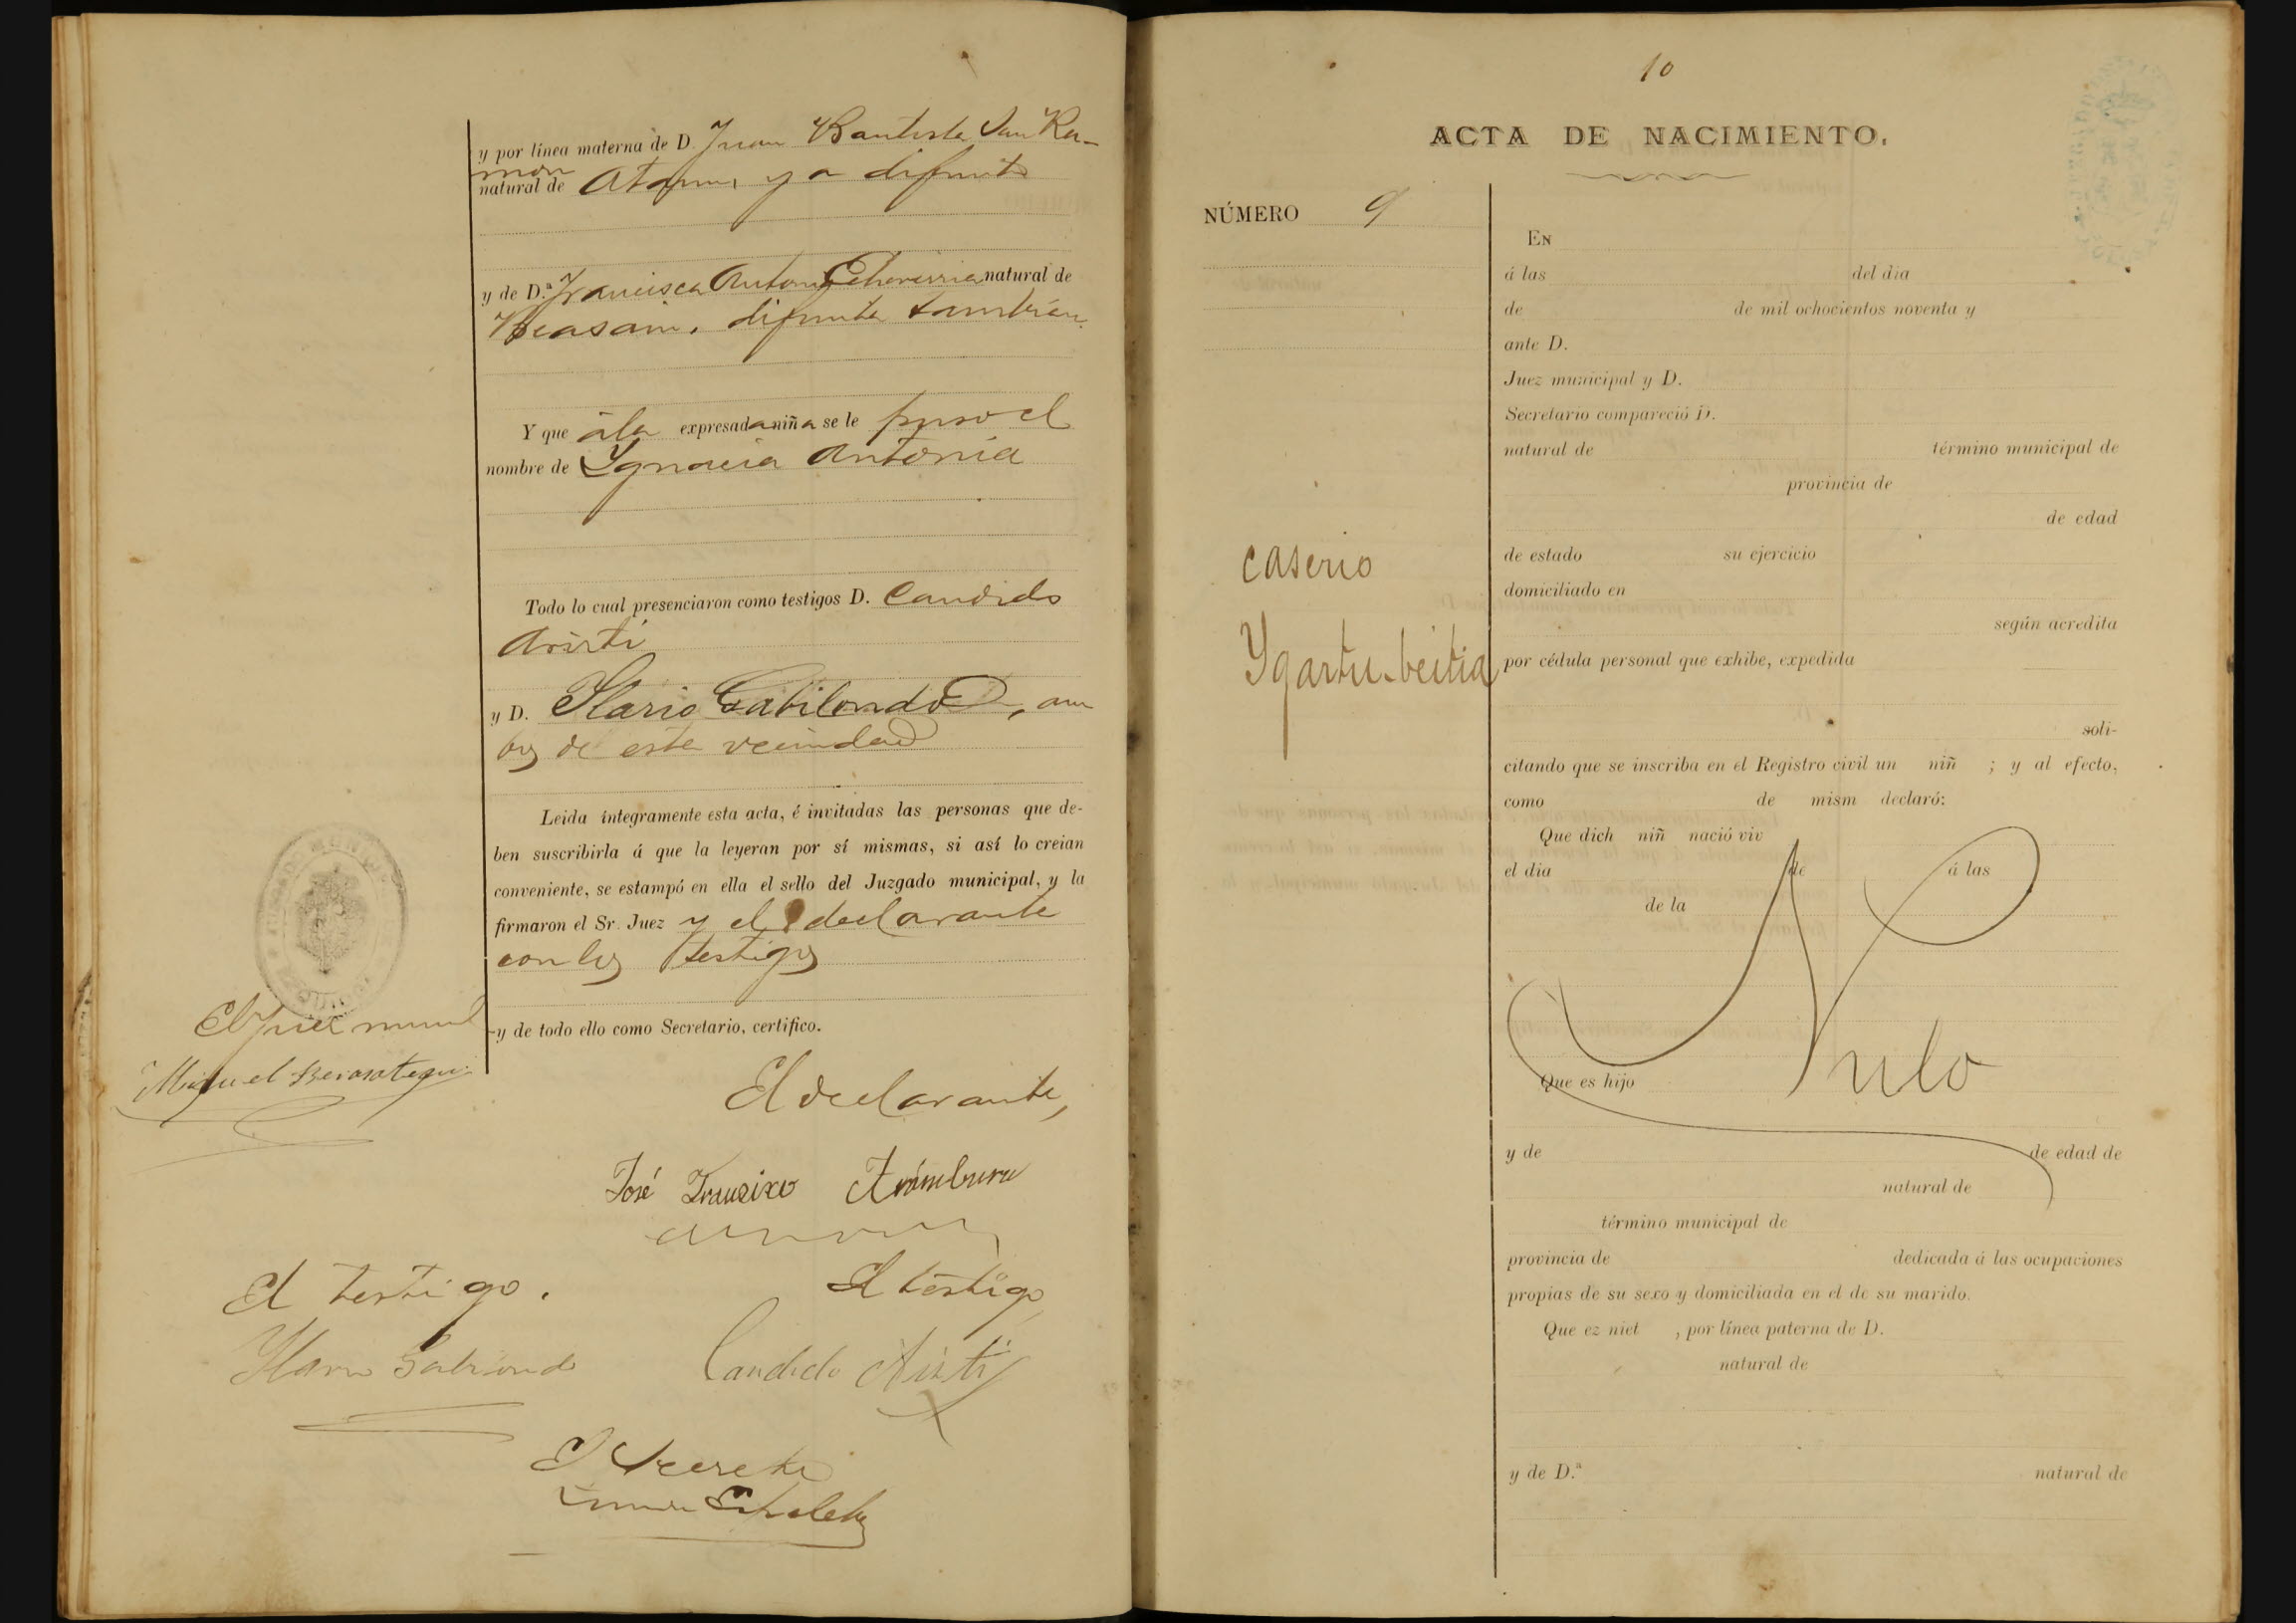 y por línea materna de D. Juan Bautista San Ra-
mon
natural de Ataun, ya difunto
y de D.ª Francisca Antonia Echeverria natural de
Beasain, difunta también.
Y que á la expresada niña se le puso el
nombre de Ygnacia Antonia
Todo lo cual presenciaron como testigos D. Candido
Aristi
y D. Ylario Gabilondo, am
bos de esta vecindad
Leida íntegramente esta acta, é invitadas las personas que de-
ben suscribirla á que la leyeran por sí mismas, si así lo creian
conveniente, se estampó en ella el sello del Juzgado municipal, y la
firmaron el Sr. Juez y el declarante
con los testigos
y de todo ello como Secretario, certifico.
El Juez munl
Miguel Berasategui
El declarante,
José Francisco Arámburu
El testigo.
El testigo
Ylario Gabilondo
Candido Aristi
El Secreto
10
ACTA DE NACIMIENTO.
NÚMERO 9
En
á las del dia
de de mil ochocientos noventa y
ante D.
Juez municipal y D.
Secretario compareció D.
natural de término municipal de
provincia de
de edad
caserio
de estado su ejercicio
domiciliado en
según acredita
Ygartu-beitia
por cédula personal que exhibe, expedida
soli-
citando que se inscriba en el Registro civil un niñ ; y al efecto,
como de mism declaró:
Que dich niñ nació viv
el dia de á las
de la
Nulo
Que es hijo
y de de edad de
natural de
término municipal de
provincia de dedicada á las ocupaciones
propias de su sexo y domiciliada en el de su marido.
Que ez niet , por línea paterna de D.
natural de
y de D.ª natural de